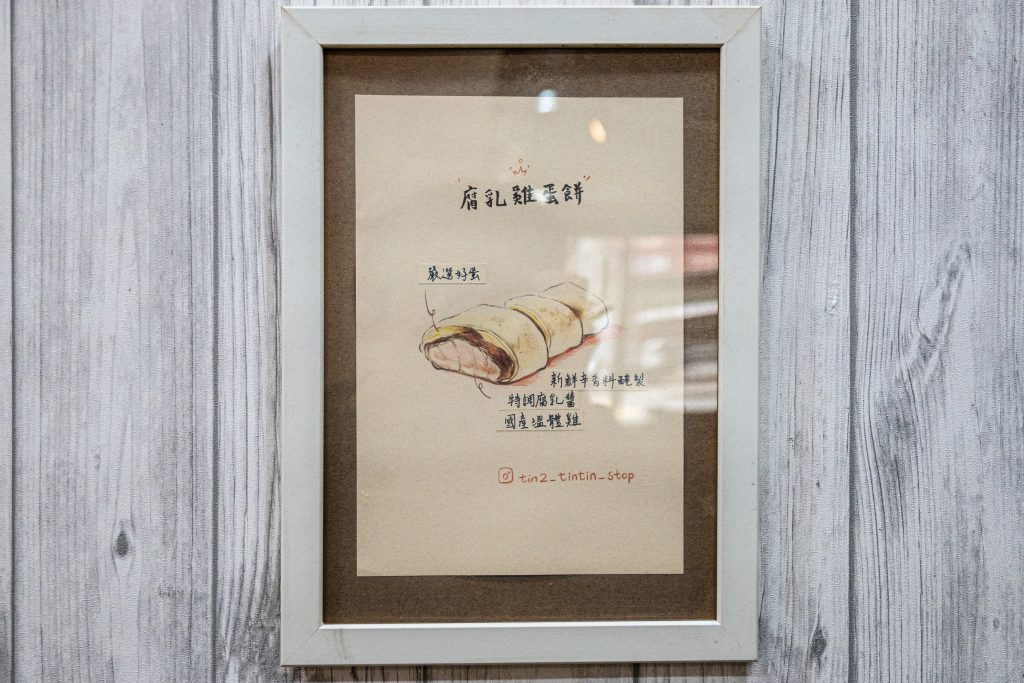 腐乳雞蛋餅
嚴選好蛋
新鮮辛香料醃製
特調腐乳醬
國產溫體雞
tin2_tintin_stop